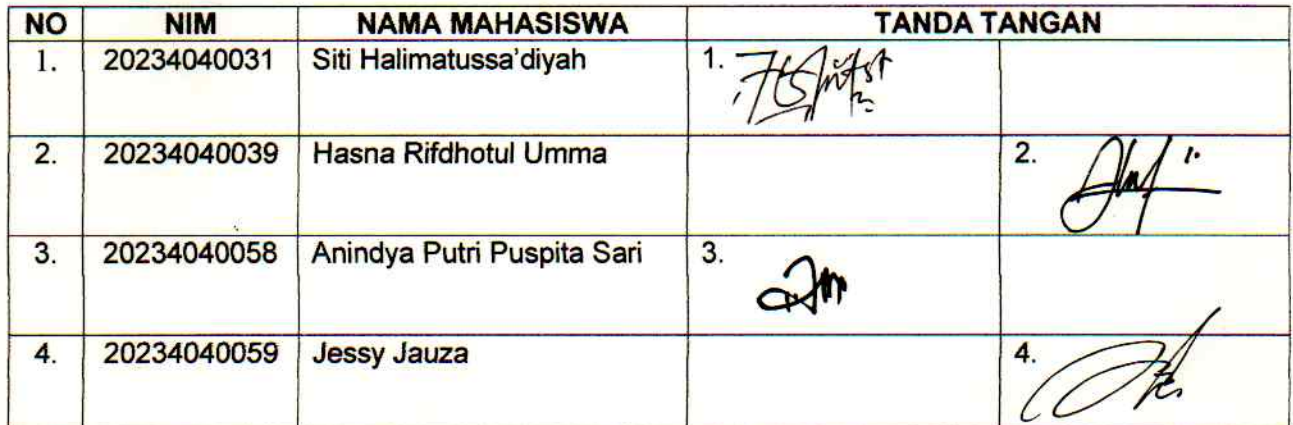 NO NIM NAMA MAHASISWA TANDA TANGAN
1. 20234040031 Siti Halimatussa'diyah 1.
2. 20234040039 Hasna Rifdhotul Umma 2.
3. 20234040058 Anindya Putri Puspita Sari 3.
4. 20234040059 Jessy Jauza 4.